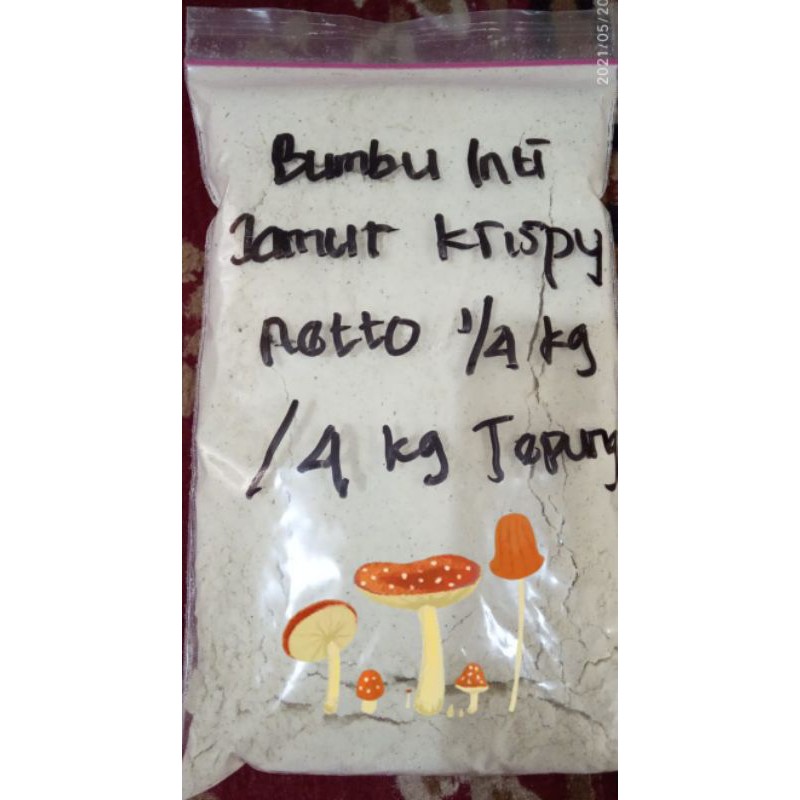 2021/05/20
Bumbu Inti
Jamur Krispy
netto 1/4 kg
/4 kg Tepung